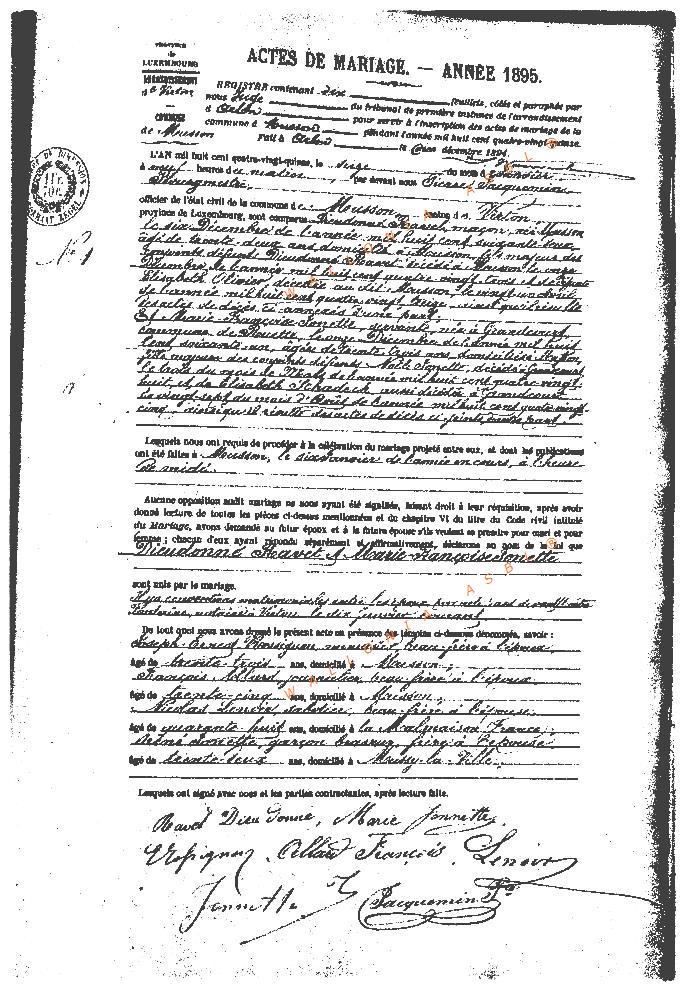 PROVINCE
de
LUXEMBOURG
ARRONDISSEMENT
de Virton
COMMUNE
de Musson
ACTES DE MARIAGE. — ANNÉE 1895.
REGISTRE contenant dix feuillets, cotés et paraphés par
nous Juge du tribunal de première instance de l'arrondissement
d'Arlon pour servir à l'inscription des actes de mariage de la
commune de Musson pendant l'année mil huit cent quatre-vingt-quinze.
Fait à Arlon le décembre 1894.
N° 1
L'AN mil huit cent quatre-vingt-quinze, le seize du mois de Janvier
à neuf heures du matin, par devant nous Pierre Jacquemin,
Bourgmestre
officier de l'état civil de la commune de Musson canton de Virton,
province de Luxembourg, sont comparus Dieudonné Havet, maçon, né à Musson
le six Décembre de l'année mil huit cent soixante deux,
âgé de trente deux ans, domicilié à Musson, fils majeur des
conjoints défunts Dieudonné Havet, décédé à Musson le onze
Décembre de l'année mil huit cent quatre vingt trois et de
Elisabeth Olivier, décédée au dit Musson, le vingt un
de l'année mil huit cent quatre vingt treize, ainsi qu'il résulte
des actes de décès ci annexés d'une part.
Et Marie Françoise Jonette, servante, née à Grandcourt,
commune de Ruette, le onze Décembre de l'année mil huit
cent soixante un, âgée de trente trois ans, domiciliée à Musson,
fille majeure des conjoints défunts Jonette, décédé à Grandcourt,
le trois du mois de Mars de l'année mil huit cent quatre vingt
huit et de Elisabeth Schadeck, aussi décédée à Grandcourt
le vingt sept du mois d'Août de l'année mil huit cent quatre vingt
cinq, ainsi qu'il résulte des actes de décès ci joints, d'autre part.
Lesquels nous ont requis de procéder à la célébration du mariage projeté entre eux, et dont les publications
ont été faites à Musson, le six Janvier de l'année en cours, à l'heure
de midi.
Aucune opposition audit mariage ne nous ayant été signifiée, faisant droit à leur réquisition, après avoir
donné lecture de toutes les pièces ci-dessus mentionnées et du chapitre VI du titre du Code civil intitulé
du Mariage, avons demandé au futur époux et à la future épouse s'ils veulent se prendre pour mari et pour
femme ; chacun d'eux ayant répondu séparément et affirmativement, déclarons au nom de la loi que
Dieudonné Havet & Marie Françoise Jonette
sont unis par le mariage.
Il y a conventions matrimoniales entre les époux par acte
notaire à Virton le dix janvier courant
De tout quoi nous avons dressé le présent acte en présence des témoins ci-dessous dénommés, savoir :
Joseph Ernest menuisier, beau frère à l'époux
âgé de trente trois ans, domicilié à Musson ;
François Allard, journalier, beau frère à l'époux
âgé de trente cinq ans, domicilié à Musson ;
Nicolas Lenoir, sabotier, beau frère à l'épouse
âgé de quarante huit ans, domicilié à la Malmaison, France ;
Jonette, garçon brasseur, frère à l'épouse
âgé de trente deux ans, domicilié à Mussy-la-Ville,
Lesquels ont signé avec nous et les parties contractantes, après lecture faite.
Havet Dieudonné, Marie Jonnette.
Allard François. Lenoir
Jonnette J Jacquemin P.
WALLONIA ASBL
WALLONIA ASBL